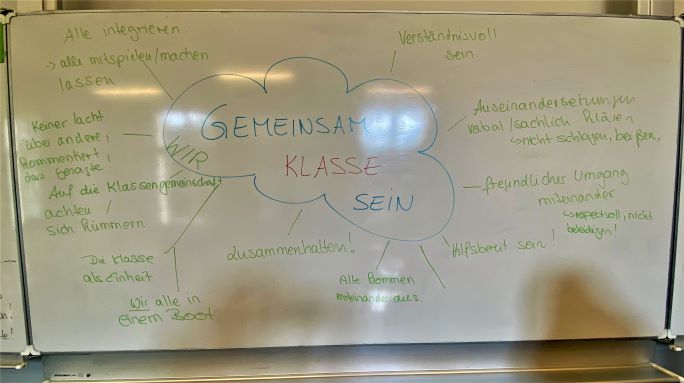 Alle integrieren
→ alle mitspielen/machen
lassen
Verständnisvoll
sein
Keiner lacht
über andere,
kommentiert
das Gesagte!
Auseinandersetzungen
verbal/sachlich klären
↳ nicht schlagen, beißen,
GEMEINSAM
WIR
KLASSE
SEIN
Auf die Klassengemeinschaft
achten
sich kümmern
freundlicher Umgang
miteinander
↳ respektvoll, nicht
beleidigen!
Zusammenhalten!
Hilfsbereit sein!
Die Klasse
als Einheit
Alle kommen
miteinander aus.
Wir alle in
einem Boot